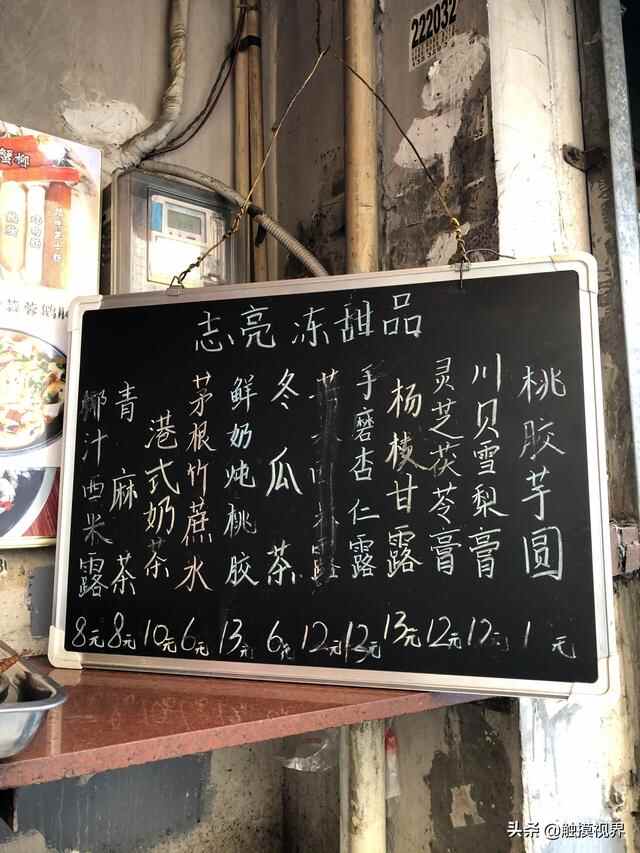 222032
蟹柳
志亮 冻甜品
桃胶芋圆 1元
川贝雪梨膏 12元
灵芝茯苓膏 12元
杨棱甘露 13元
手磨杏仁露 13元
12元
冬瓜茶 6元
鲜奶炖桃胶 13元
茅根竹蔗水 6元
港式奶茶 10元
青麻茶 8元
椰汁西米露 8元
头条 @触摸视界